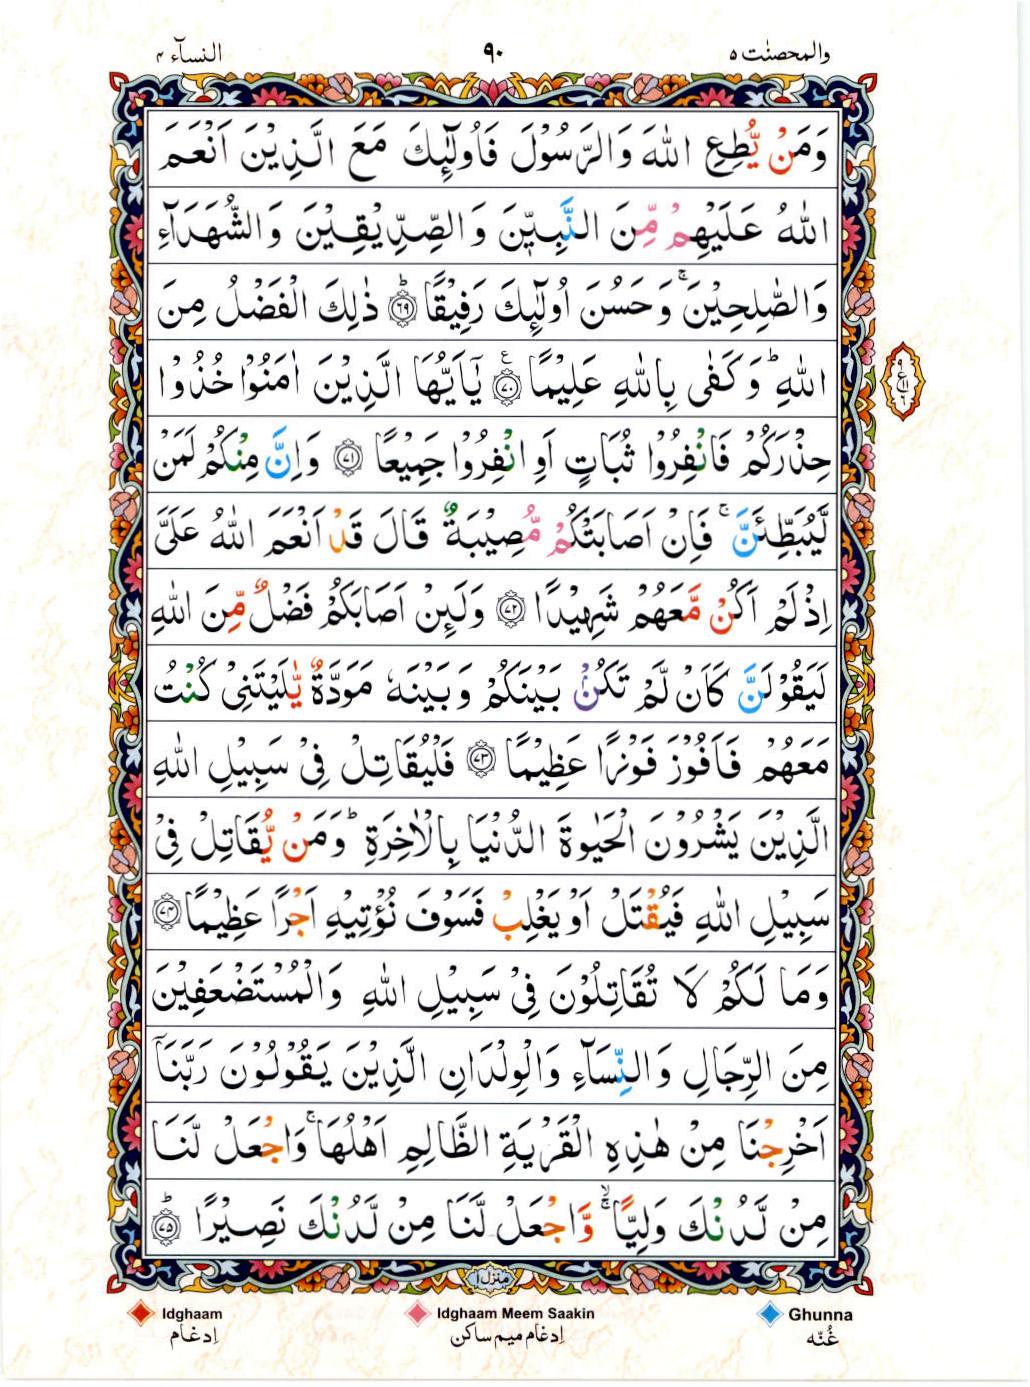 والمحصنٰت ٥
٩٠
النسآء ٤
وَمَنْ يُّطِعِ اللهَ وَالرَّسُوْلَ فَاُولٰٓئِكَ مَعَ الَّذِيْنَ اَنْعَمَ
اللهُ عَلَيْهِمْ مِّنَ النَّبِيّٖنَ وَالصِّدِّيْقِيْنَ وَالشُّهَدَآءِ
وَالصّٰلِحِيْنَ ۚ وَحَسُنَ اُولٰٓئِكَ رَفِيْقًا ؕ ﴿٦٩﴾ ذٰلِكَ الْفَضْلُ مِنَ
اللهِ ؕ وَكَفٰى بِاللهِ عَلِيْمًا ﴿٧٠﴾ ع يٰٓاَيُّهَا الَّذِيْنَ اٰمَنُوْا خُذُوْا
حِذْرَكُمْ فَانْفِرُوْا ثُبَاتٍ اَوِ انْفِرُوْا جَمِيْعًا ﴿٧١﴾ وَاِنَّ مِنْكُمْ لَمَنْ
لَّيُبَطِّئَنَّ ۚ فَاِنْ اَصَابَتْكُمْ مُّصِيْبَةٌ قَالَ قَدْ اَنْعَمَ اللهُ عَلَىَّ
اِذْ لَمْ اَكُنْ مَّعَهُمْ شَهِيْدًا ﴿٧٢﴾ وَلَئِنْ اَصَابَكُمْ فَضْلٌ مِّنَ اللهِ
لَيَقُوْلَنَّ كَاَنْ لَّمْ تَكُنْ بَيْنَكُمْ وَبَيْنَهٗ مَوَدَّةٌ يّٰلَيْتَنِىْ كُنْتُ
مَعَهُمْ فَاَفُوْزَ فَوْزًا عَظِيْمًا ﴿٧٣﴾ فَلْيُقَاتِلْ فِىْ سَبِيْلِ اللهِ
الَّذِيْنَ يَشْرُوْنَ الْحَيٰوةَ الدُّنْيَا بِالْاٰخِرَةِ ؕ وَمَنْ يُّقَاتِلْ فِىْ
سَبِيْلِ اللهِ فَيُقْتَلْ اَوْ يَغْلِبْ فَسَوْفَ نُؤْتِيْهِ اَجْرًا عَظِيْمًا ﴿٧٤﴾
وَمَا لَكُمْ لَا تُقَاتِلُوْنَ فِىْ سَبِيْلِ اللهِ وَالْمُسْتَضْعَفِيْنَ
مِنَ الرِّجَالِ وَالنِّسَآءِ وَالْوِلْدَانِ الَّذِيْنَ يَقُوْلُوْنَ رَبَّنَاۤ
اَخْرِجْنَا مِنْ هٰذِهِ الْقَرْيَةِ الظَّالِمِ اَهْلُهَا ۚ وَاجْعَلْ لَّنَا
مِنْ لَّدُنْكَ وَلِيًّا ۙۚ وَّاجْعَلْ لَّنَا مِنْ لَّدُنْكَ نَصِيْرًا ؕ ﴿٧٥﴾
منزل ١
Idghaam
اِدغام
Idghaam Meem Saakin
اِدغام ميم ساكن
Ghunna
غُنّه